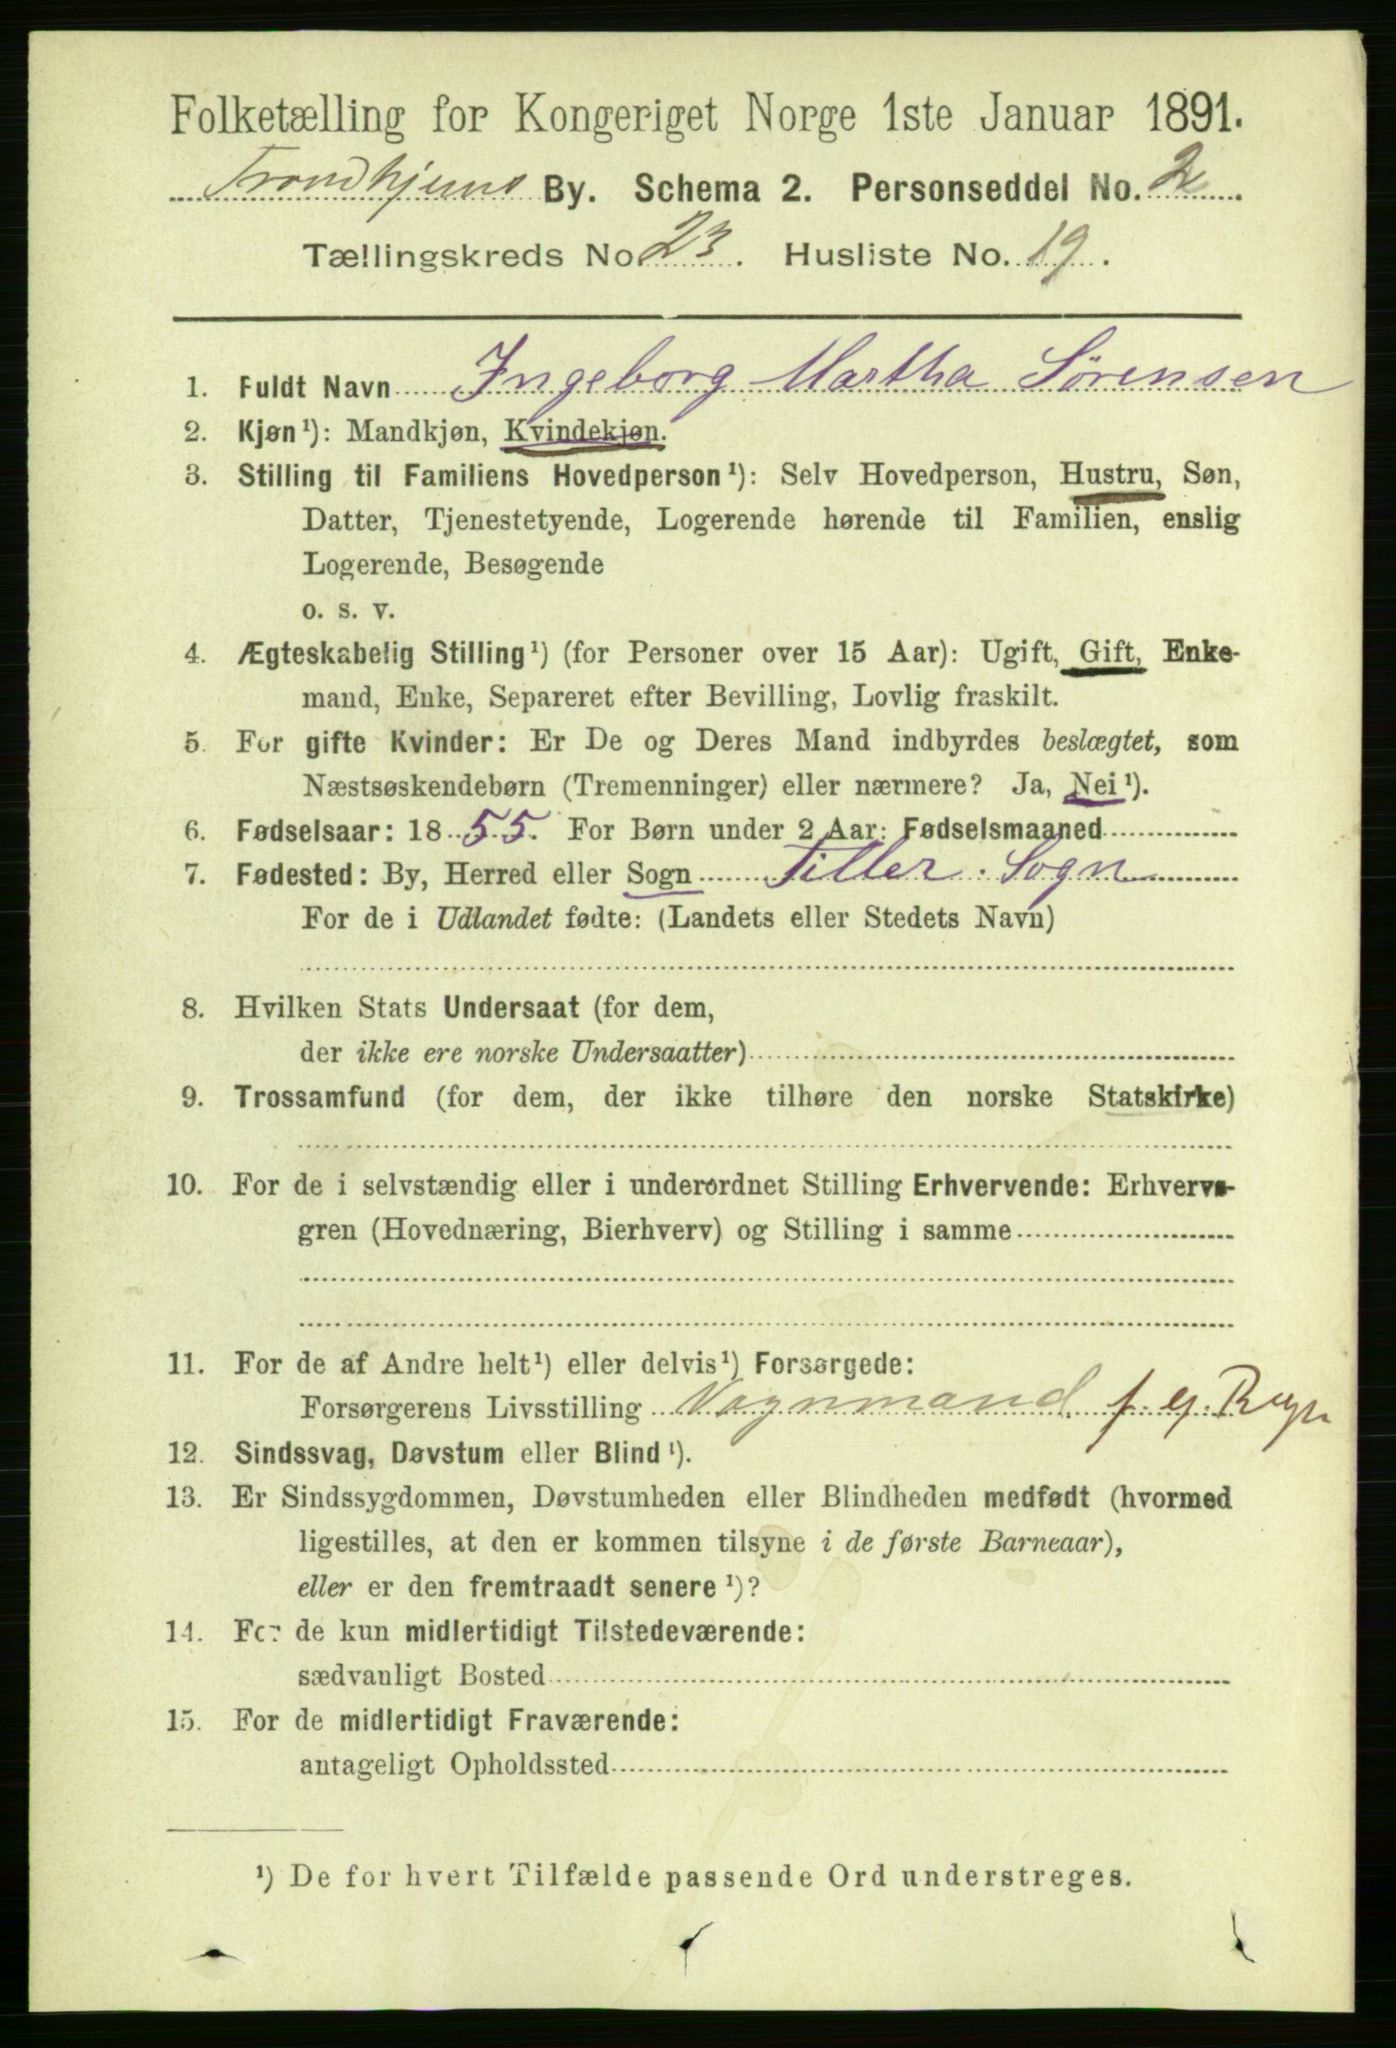 Folketælling for Kongeriget Norge 1ste Januar 1891.
Trondhjems By. Schema 2. Personseddel No. 2
Tællingskreds No. 23. Husliste No. 19.
1. Fuldt Navn Ingeborg Martha Sörensen
2. Kjøn¹): Mandkjøn, Kvindekjøn.
3. Stilling til Familiens Hovedperson¹): Selv Hovedperson, Hustru, Søn,
Datter, Tjenestetyende, Logerende hørende til Familien, enslig
Logerende, Besøgende
o. s. v.
4. Ægteskabelig Stilling¹) (for Personer over 15 Aar): Ugift, Gift, Enke-
mand, Enke, Separeret efter Bevilling, Lovlig fraskilt.
5. For gifte Kvinder: Er De og Deres Mand indbyrdes beslægtet, som
Næstsøskendebørn (Tremenninger) eller nærmere? Ja, Nei¹).
6. Fødselsaar: 1855. For Børn under 2 Aar: Fødselsmaaned
7. Fødested: By, Herred eller Sogn Tiller. Sogn
For de i Udlandet fødte: (Landets eller Stedets Navn)
8. Hvilken Stats Undersaat (for dem,
der ikke ere norske Undersaatter)
9. Trossamfund (for dem, der ikke tilhøre den norske Statskirke)
10. For de i selvstændig eller i underordnet Stilling Erhvervende: Erhvervs-
gren (Hovednæring, Bierhverv) og Stilling i samme
11. For de af Andre helt¹) eller delvis¹) Forsørgede:
Forsørgerens Livsstilling Vognmand f. eg. Regn
12. Sindssvag, Døvstum eller Blind¹).
13. Er Sindssygdommen, Døvstumheden eller Blindheden medfødt (hvormed
ligestilles, at den er kommen tilsyne i de første Barneaar),
eller er den fremtraadt senere¹)?
14. For de kun midlertidigt Tilstedeværende:
sædvanligt Bosted
15. For de midlertidigt Fraværende:
antageligt Opholdssted
¹) De for hvert Tilfælde passende Ord understreges.